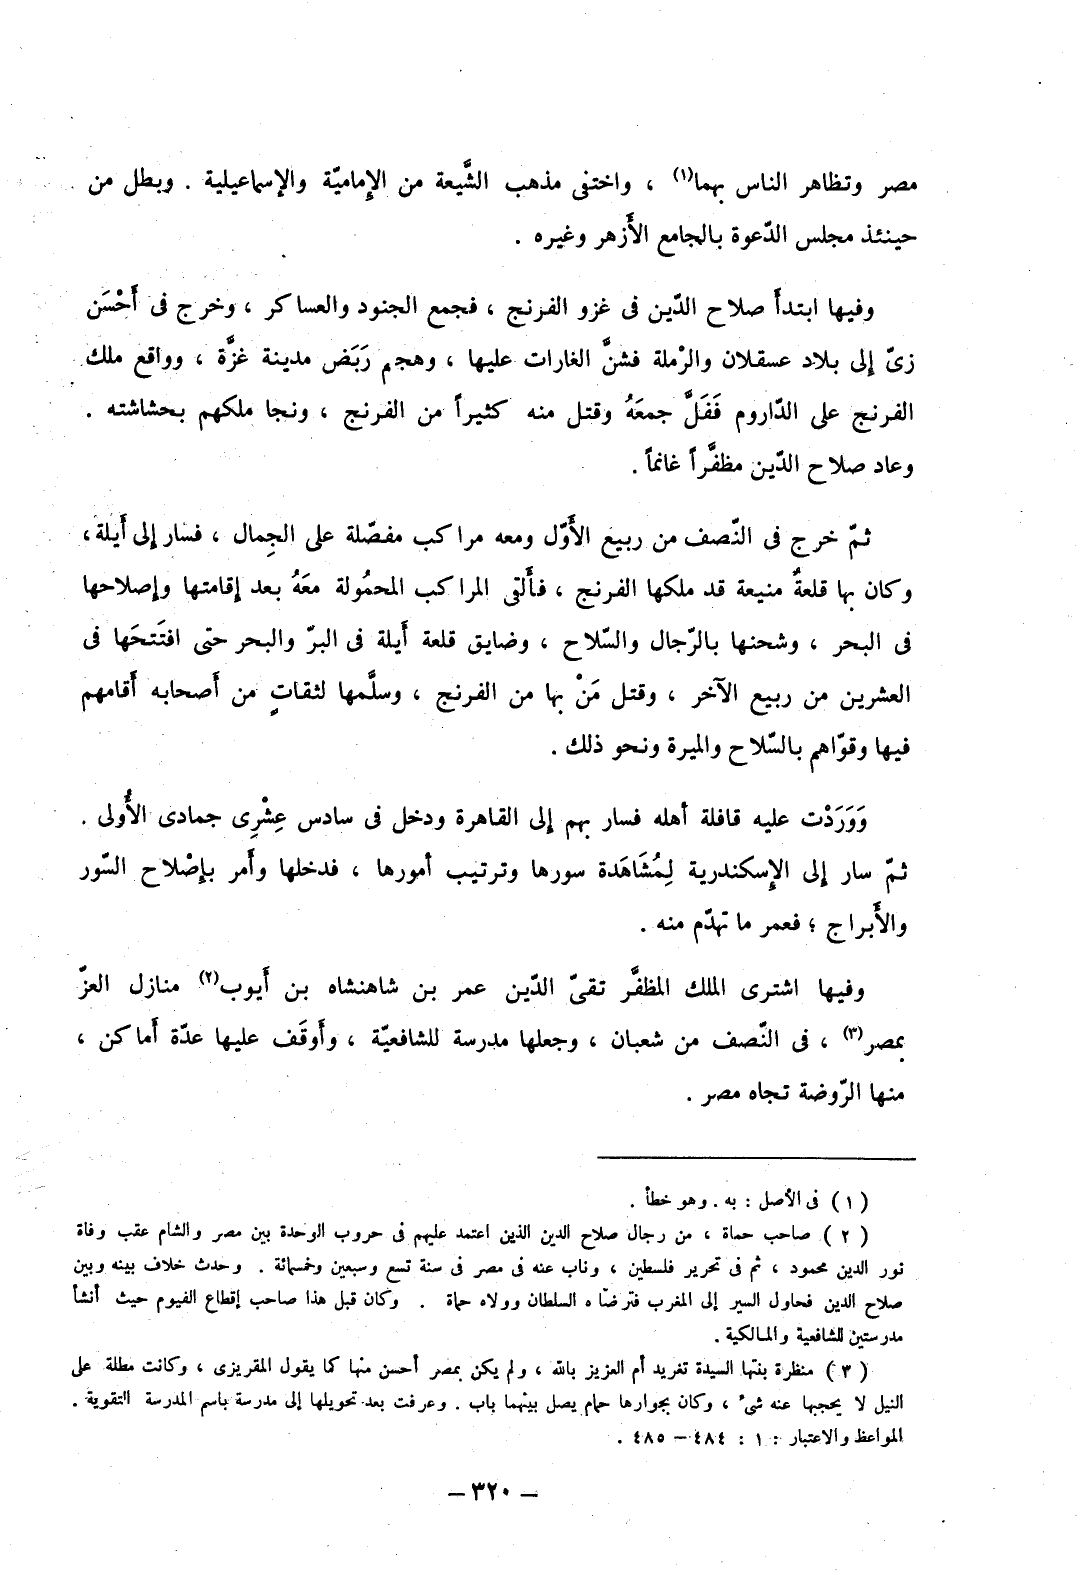 مصر وتظاهر الناس بهما(١) ، واختفى مذهب الشَّيعة من الإِماميّة والإِسماعيلية . وبطل من
حينئذ مجلس الدّعوة بالجامع الأَزهر وغيره .
وفيها ابتدأَ صلاح الدّين فى غزو الفرنج ، فجمع الجنود والعساكر ، وخرج فى أَحْسَن
زىّ إلى بلاد عسقلان والرْملة فشنَّ الغارات عليها ، وهجم رَبَض مدينة غزَّة ، وواقع ملك
الفرنج على الدّاروم فَفَلَّ جمعَهُ وقتل منه كثيراً من الفرنج ، ونجا ملكهم بحشاشته .
وعاد صلاح الدّين مظفَّراً غانماً .
ثمّ خرج فى النّصف من ربيع الأَوّل ومعه مراكب مفصّلة على الجِمال ، فسار إلى أَيلة ،
وكان بها قلعةٌ منيعة قد ملكها الفرنج ، فأَلقى المراكب المحمُولة معَهُ بعد إِقامتها وإِصلاحها
فى البحر ، وشحنها بالرّجال والسّلاح ، وضايق قلعة أَيلة فى البرّ والبحر حتى افتَتحَها فى
العشرين من ربيع الآخر ، وقتل مَنْ بها من الفرنج ، وسلَّمها لثقاتٍ من أَصحابه أَقامهم
فيها وقوّاهم بالسّلاح والميرة ونحو ذلك .
وَوَرَدْت عليه قافلة أهله فسار بهم إلى القاهرة ودخل فى سادس عِشْرِى جمادى الأُولى .
ثمّ سار إلى الإِسكندرية لِمُشَاهَدة سورها وترتيب أمورها ، فدخلها وأَمر بإِصْلاح السّور
والأَبراج ؛ فعمر ما تهدّم منه .
وفيها اشترى الملك المظفَّر تقىّ الدّين عمر بن شاهنشاه بن أَيوب(٢) منازل العزّ
بمصر(٣) ، فى النّصف من شعبان ، وجعلها مدرسة للشافعيّة ، وأَوقَف عليها عدّة أَماكن ،
منها الرّوضة تجاه مصر .
( ١ ) فى الأصل : به . وهو خطأ .
( ٢ ) صاحب حماة ، من رجال صلاح الدين الذين اعتمد عليهم فى حروب الوحدة بين مصر والشام عقب وفاة
نور الدين محمود ، ثم فى تحرير فلسطين ، وناب عنه فى مصر فى سنة تسع وسبعين وخمسمائة . وحدث خلاف بينه وبين
صلاح الدين فحاول السير إلى المغرب فترضّاه السلطان وولاه حماة . وكان قبل هذا صاحب إقطاع الفيوم حيث أنشأ
مدرستين للشافعية والمالكية .
( ٣ ) منظرة بنتها السيدة تغريد أم العزيز بالله ، ولم يكن بمصر أحسن منها كما يقول المقريزى ، وكانت مطلة على
النيل لا يحجبها عنه شىء ، وكان بجوارها حمام يصل بينهما باب . وعرفت بعد تحويلها إلى مدرسة باسم المدرسة التقوية .
المواعظ والاعتبار : ١ : ٤٨٤ – ٤٨٥ .
– ٣٢٠ –